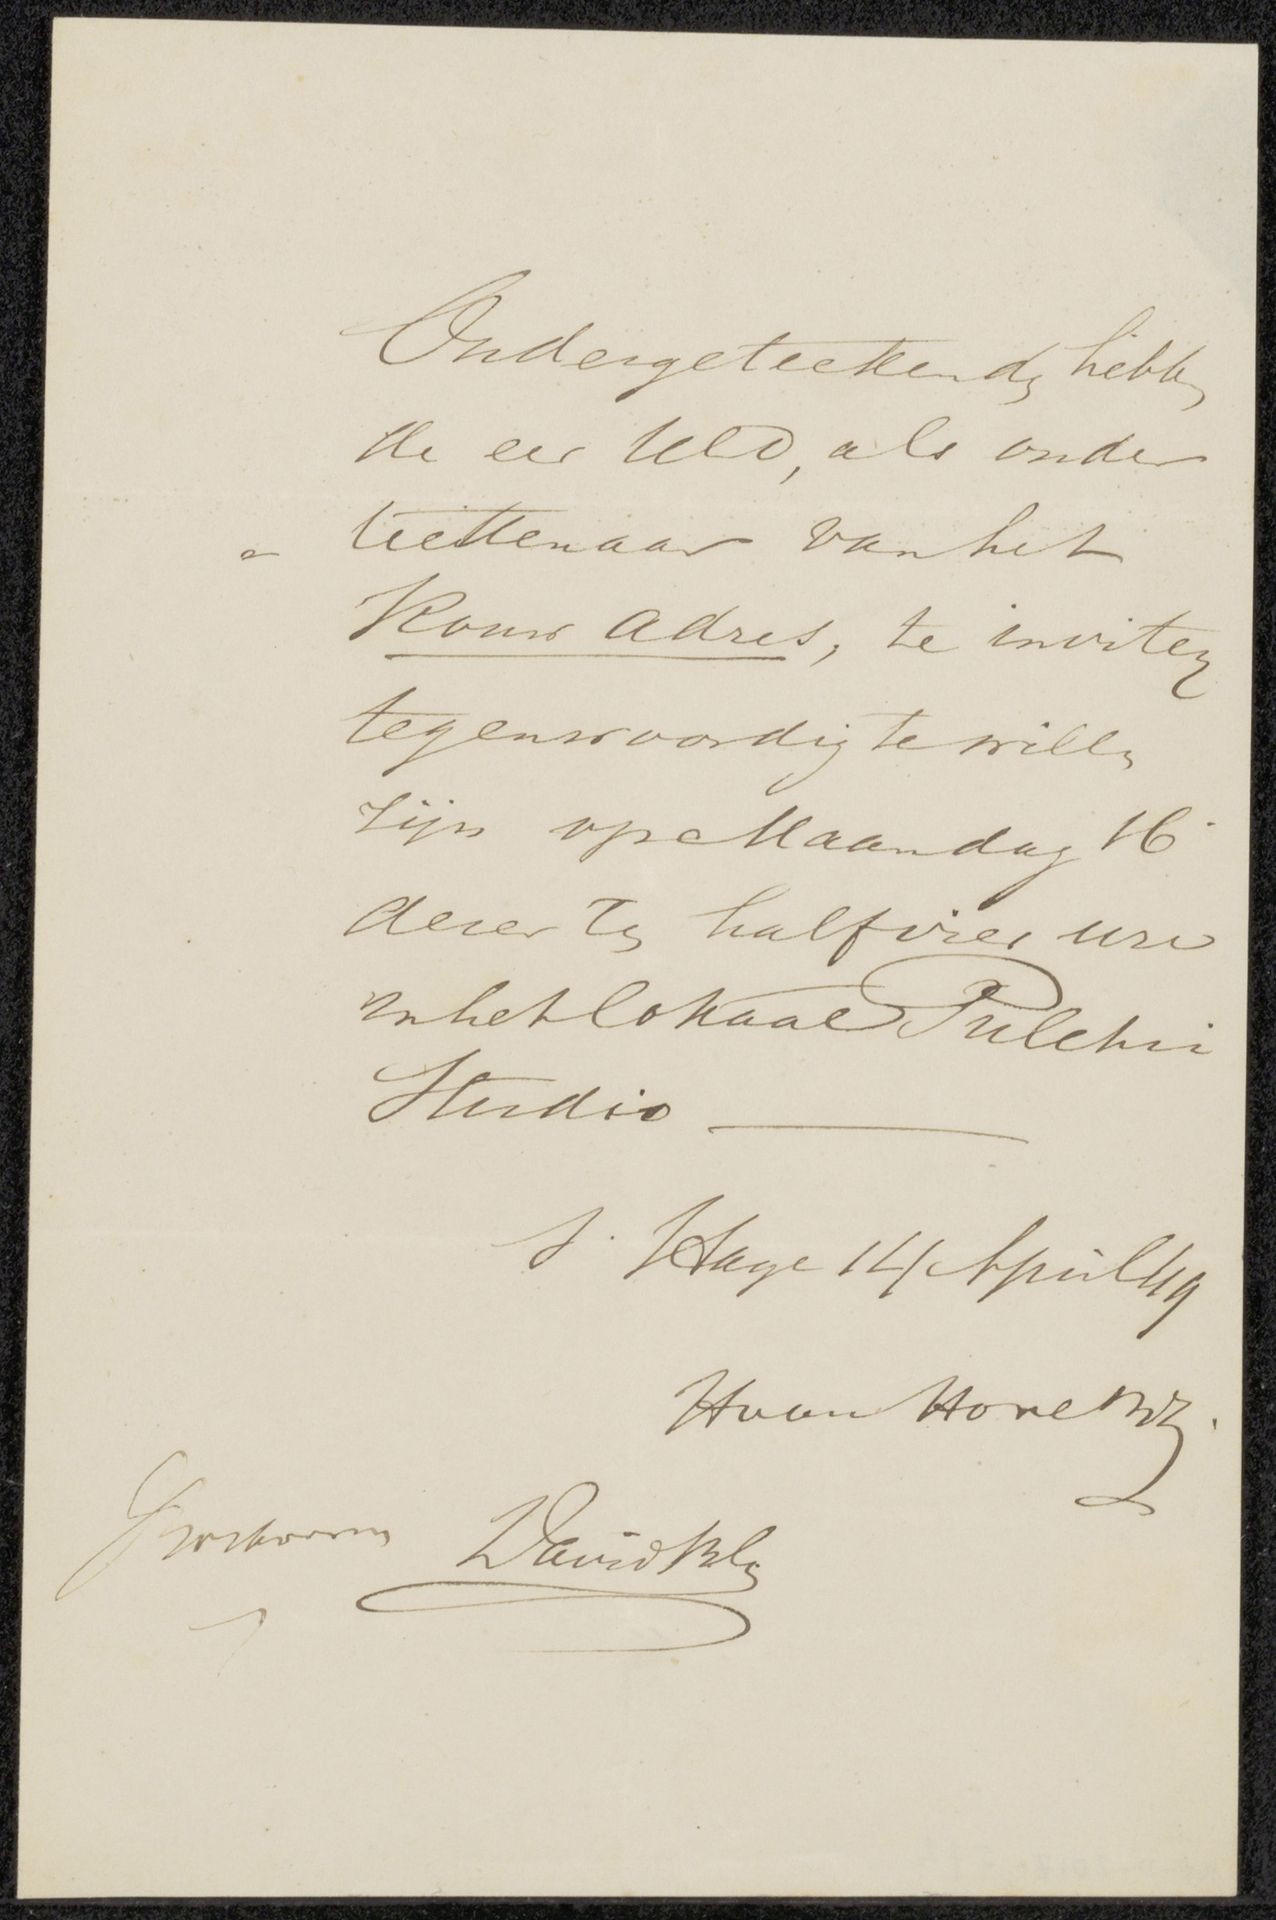 Ondergeteekendn hebbn
de eer UEd, als onder
teekenaar van het
Rouw adres, te inviten
tegenwoordig te willn
zijn op Maandag 16
dezer tn half vier ure
in het lokaal Pulchri
Studio
s. Hage 14 April 49
H van Hove Bz.
David Bles